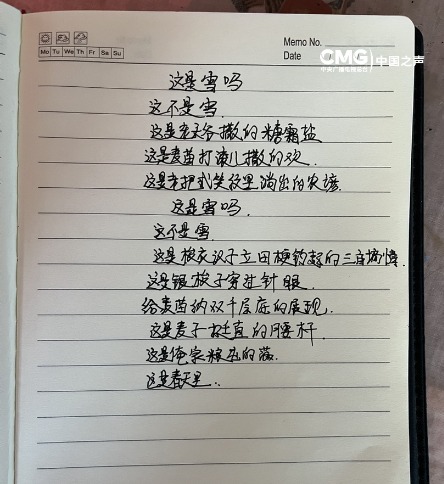 Memo No.
Mo Tu We Th Fr Sa Su
Date
CMG 中国之声
中央广播电视总台
这是雪吗
这不是雪.
这是老天爷撒的糖霜盐
这是麦苗打滚儿撒的欢.
这是老把式笑纹里淌出的农谚.
这是雪吗.
这不是雪
这是 立田埂 的三
这是银梭子穿过针眼
给麦苗纳双千层底的
这是麦子挺直的腰杆.
这是俺家粮
这是春天里..